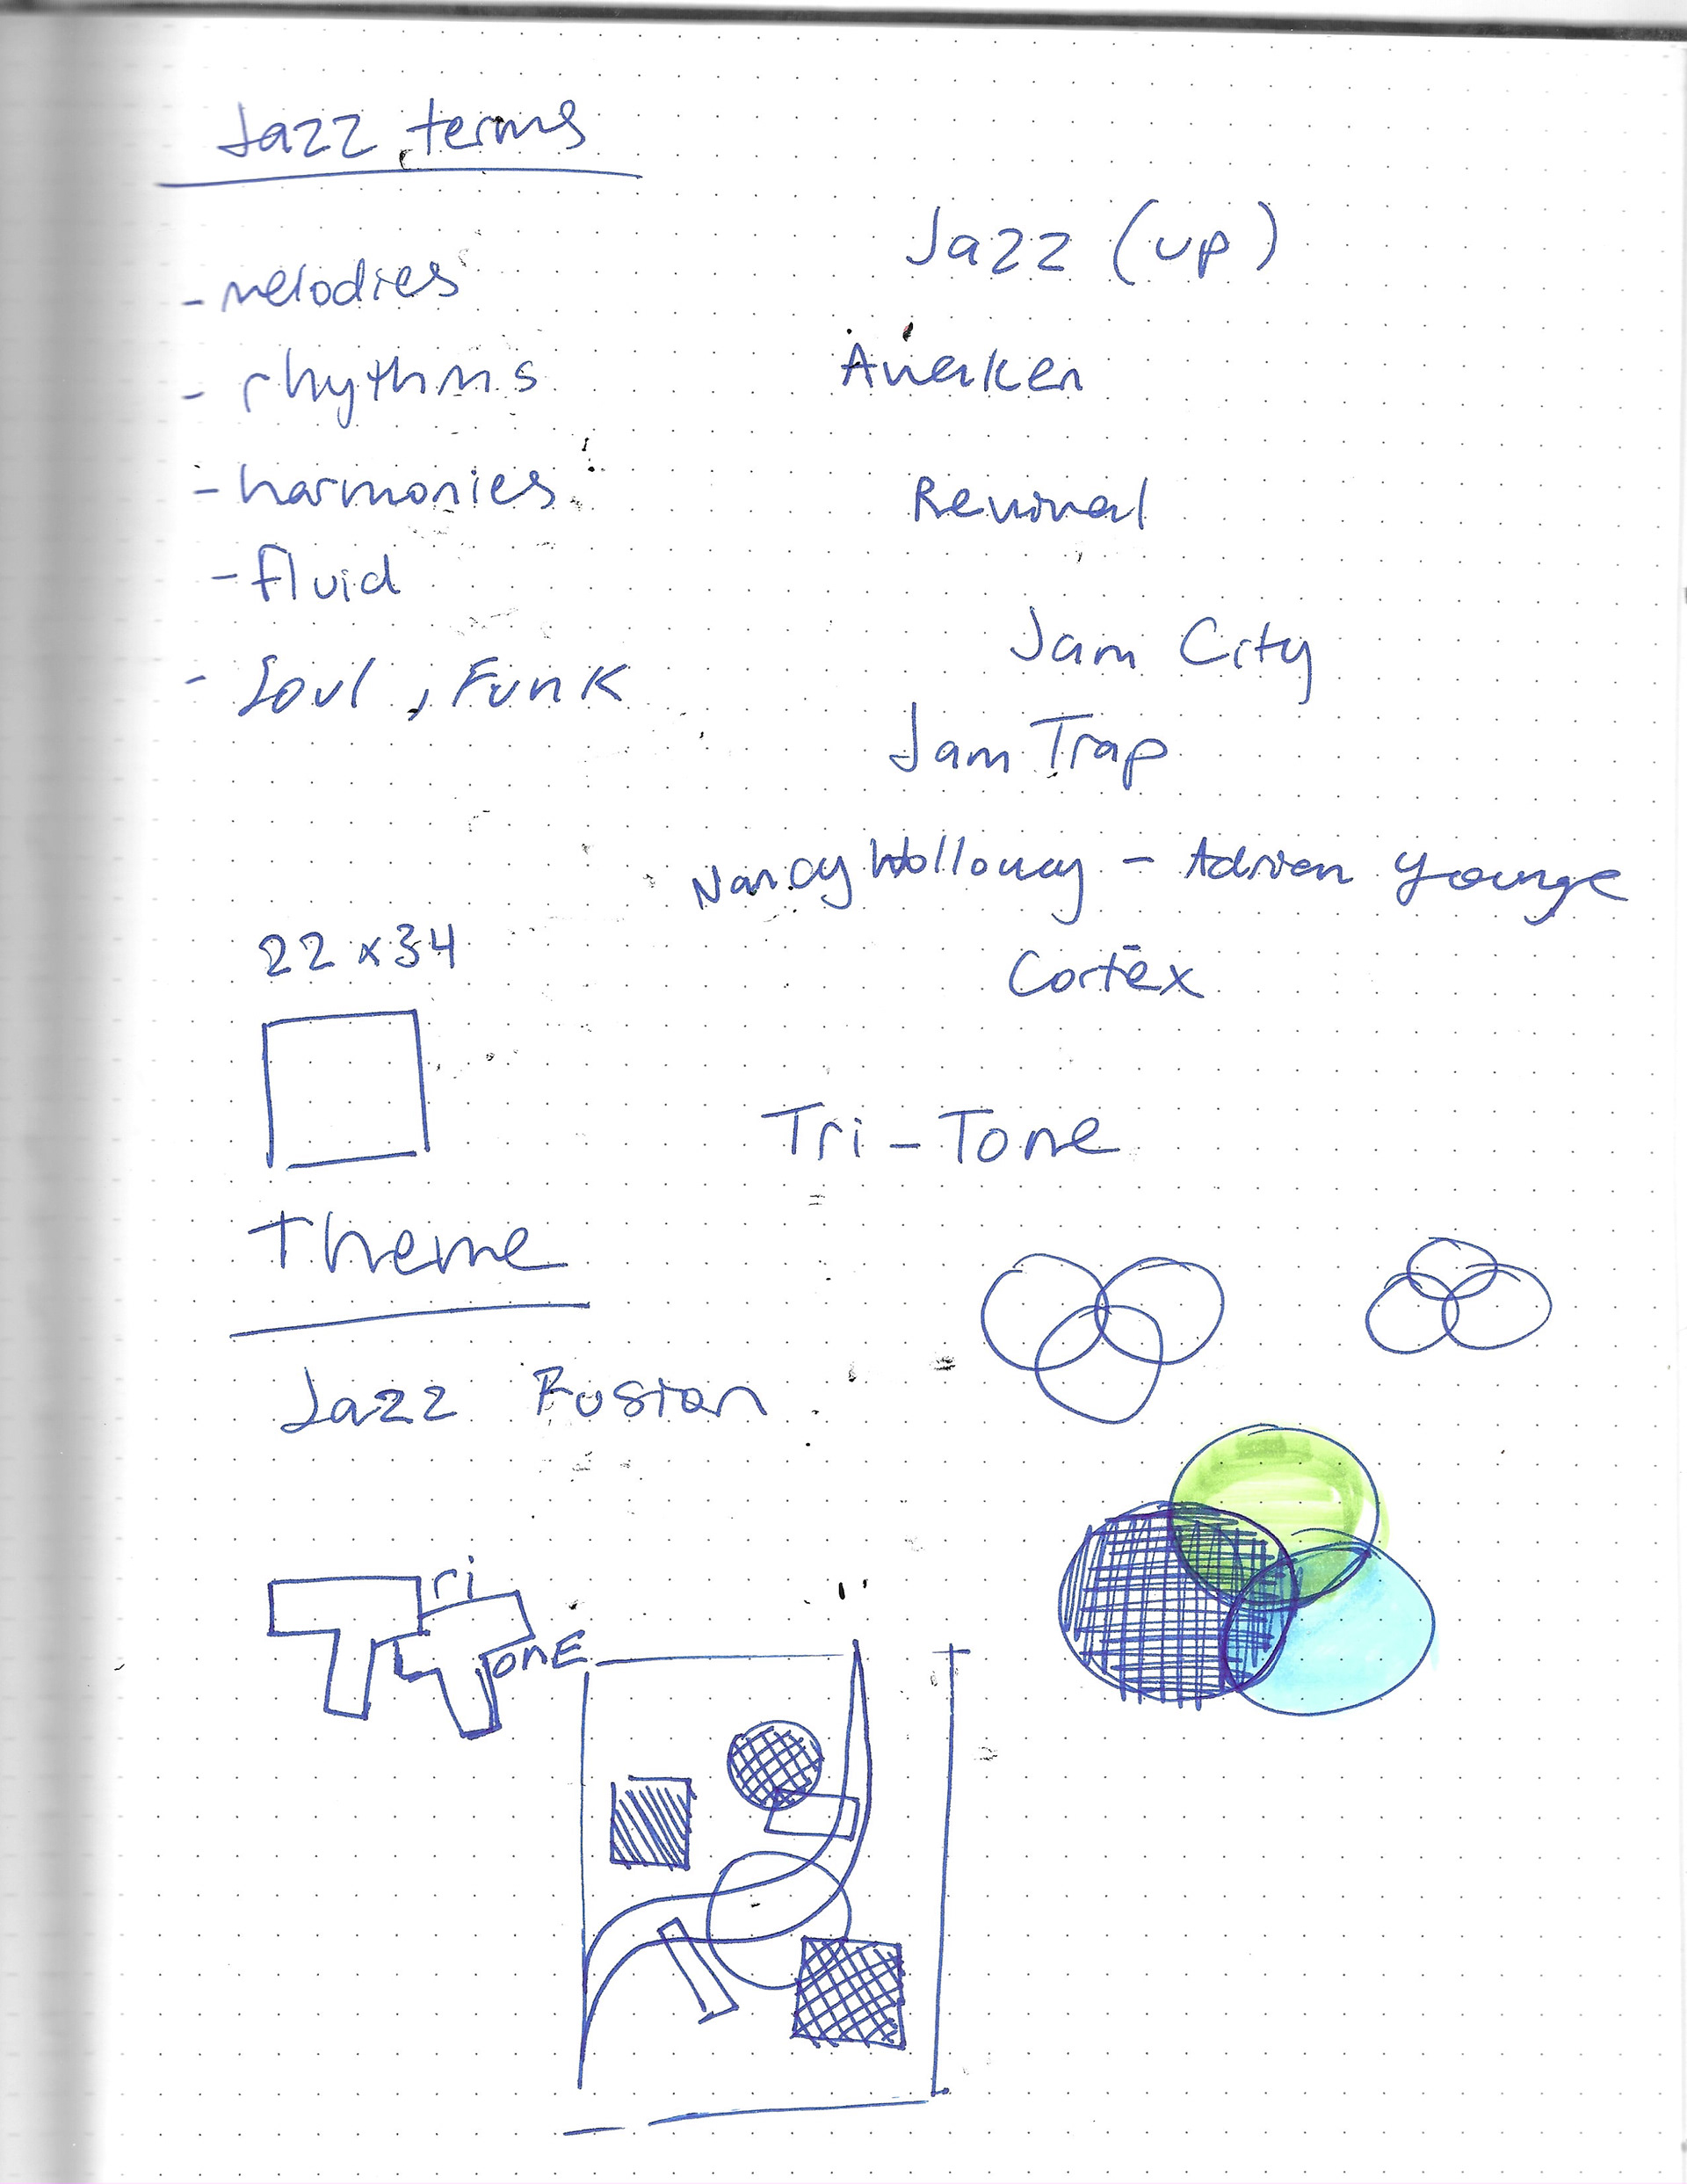 Jazz terms
- melodies
- rhythms
- harmonies
- fluid
- Soul, Funk
Jazz (up)
Awaken
Revival
Jam City
Jam Trap
Nancy Holloway - Adrian Younge
Cortex
22 x 34
Tri - Tone
Theme
Jazz Fusion
Tri
TonE